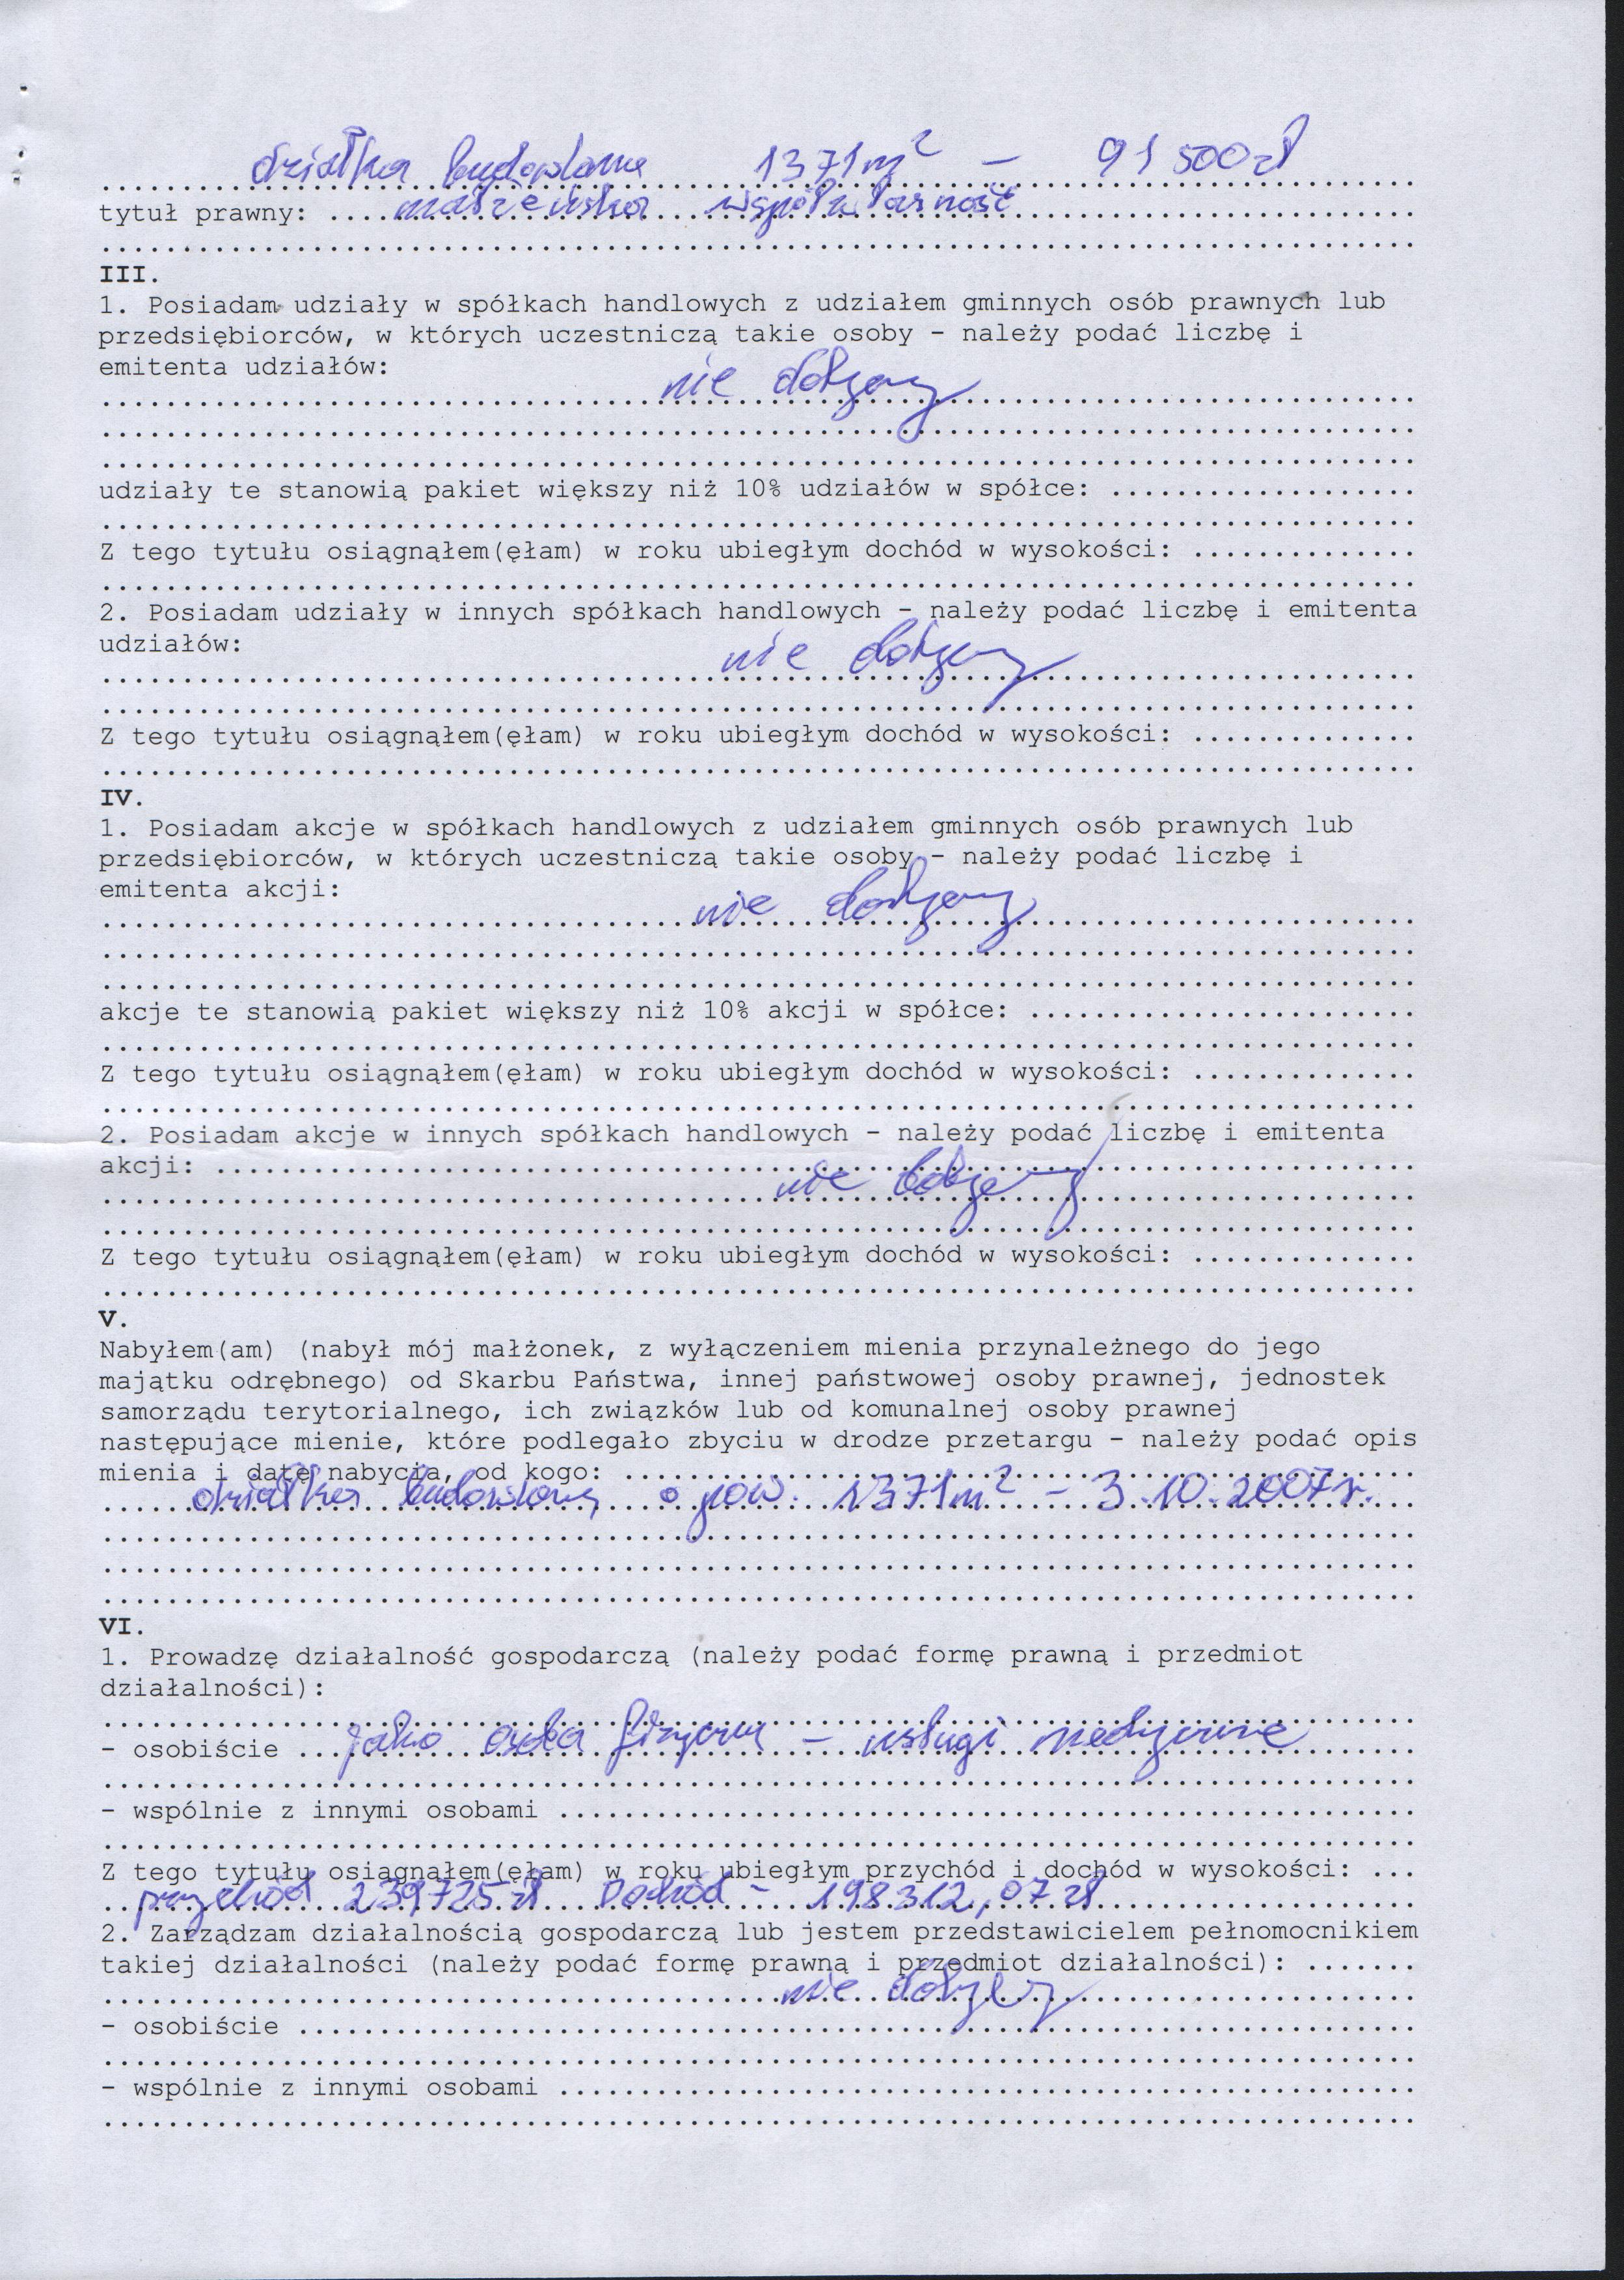 działka budowlana 1371 m² - 91 500 zł
tytuł prawny: .... małżeńska współwłasność
III.
1. Posiadam udziały w spółkach handlowych z udziałem gminnych osób prawnych lub
przedsiębiorców, w których uczestniczą takie osoby - należy podać liczbę i
emitenta udziałów:
nie dotyczy
udziały te stanowią pakiet większy niż 10% udziałów w spółce: ...................
Z tego tytułu osiągnąłem(ęłam) w roku ubiegłym dochód w wysokości: ..............
2. Posiadam udziały w innych spółkach handlowych - należy podać liczbę i emitenta
udziałów:
nie dotyczy
Z tego tytułu osiągnąłem(ęłam) w roku ubiegłym dochód w wysokości: ..............
IV.
1. Posiadam akcje w spółkach handlowych z udziałem gminnych osób prawnych lub
przedsiębiorców, w których uczestniczą takie osoby - należy podać liczbę i
emitenta akcji:
nie dotyczy
akcje te stanowią pakiet większy niż 10% akcji w spółce: ........................
Z tego tytułu osiągnąłem(ęłam) w roku ubiegłym dochód w wysokości: ..............
2. Posiadam akcje w innych spółkach handlowych - należy podać liczbę i emitenta
akcji: ..........................................................................
nie dotyczy
Z tego tytułu osiągnąłem(ęłam) w roku ubiegłym dochód w wysokości: ..............
V.
Nabyłem(am) (nabył mój małżonek, z wyłączeniem mienia przynależnego do jego
majątku odrębnego) od Skarbu Państwa, innej państwowej osoby prawnej, jednostek
samorządu terytorialnego, ich związków lub od komunalnej osoby prawnej
następujące mienie, które podlegało zbyciu w drodze przetargu - należy podać opis
mienia i datę nabycia, od kogo: .................................................
działka budowlana o pow. 1371 m² - 3.10.2007 r.
VI.
1. Prowadzę działalność gospodarczą (należy podać formę prawną i przedmiot
działalności):
- osobiście ... jako osoba fizyczna - usługi medyczne
- wspólnie z innymi osobami .....................................................
Z tego tytułu osiągnąłem(ęłam) w roku ubiegłym przychód i dochód w wysokości: ...
przychód 239725 zł Dochód - 198312,07 zł
2. Zarządzam działalnością gospodarczą lub jestem przedstawicielem pełnomocnikiem
takiej działalności (należy podać formę prawną i przedmiot działalności): .......
nie dotyczy
- osobiście .....................................................................
- wspólnie z innymi osobami .....................................................